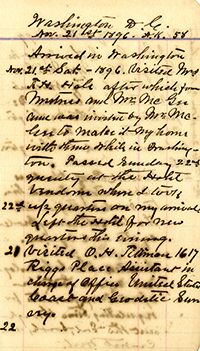 Washington D. C.
Nov. 21st 1896. A.K. 58
Arrived in Washington
Nov. 21st Sat - 1896. Visited Mrs
J. H. Hole after which Jon
and Mrs. Mc Gee
and was invited by Mr. Mc
Gee to make it my home
with them while in Washing-
ton. Passed Sunday 22nd
quietly at the Hotel
Vendome where I took
22nd up quarters on my arrival
Left the Hotel for new
quarters this evening.
21 Visited O. H. Tittman 1617
Riggs Place Assistant in
charge of Office United States
Coast and Geodetic Sur
vey.
22